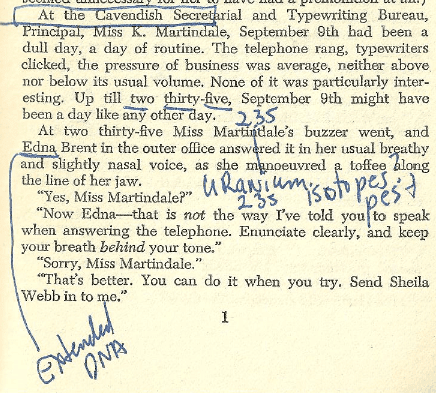 At the Cavendish Secretarial and Typewriting Bureau,
Principal, Miss K. Martindale, September 9th had been a
dull day, a day of routine. The telephone rang, typewriters
clicked, the pressure of business was average, neither above
nor below its usual volume. None of it was particularly inter-
esting. Up till two thirty-five, September 9th might have
been a day like any other day.
235
At two thirty-five Miss Martindale's buzzer went, and
Edna Brent in the outer office answered it in her usual breathy
and slightly nasal voice, as she manoeuvred a toffee along
the line of her jaw.
uranium isotopes?
235
pest
"Yes, Miss Martindale?"
"Now Edna—that is not the way I've told you to speak
when answering the telephone. Enunciate clearly, and keep
your breath behind your tone."
"Sorry, Miss Martindale."
"That's better. You can do it when you try. Send Sheila
Webb in to me."
1
Extended
DNA